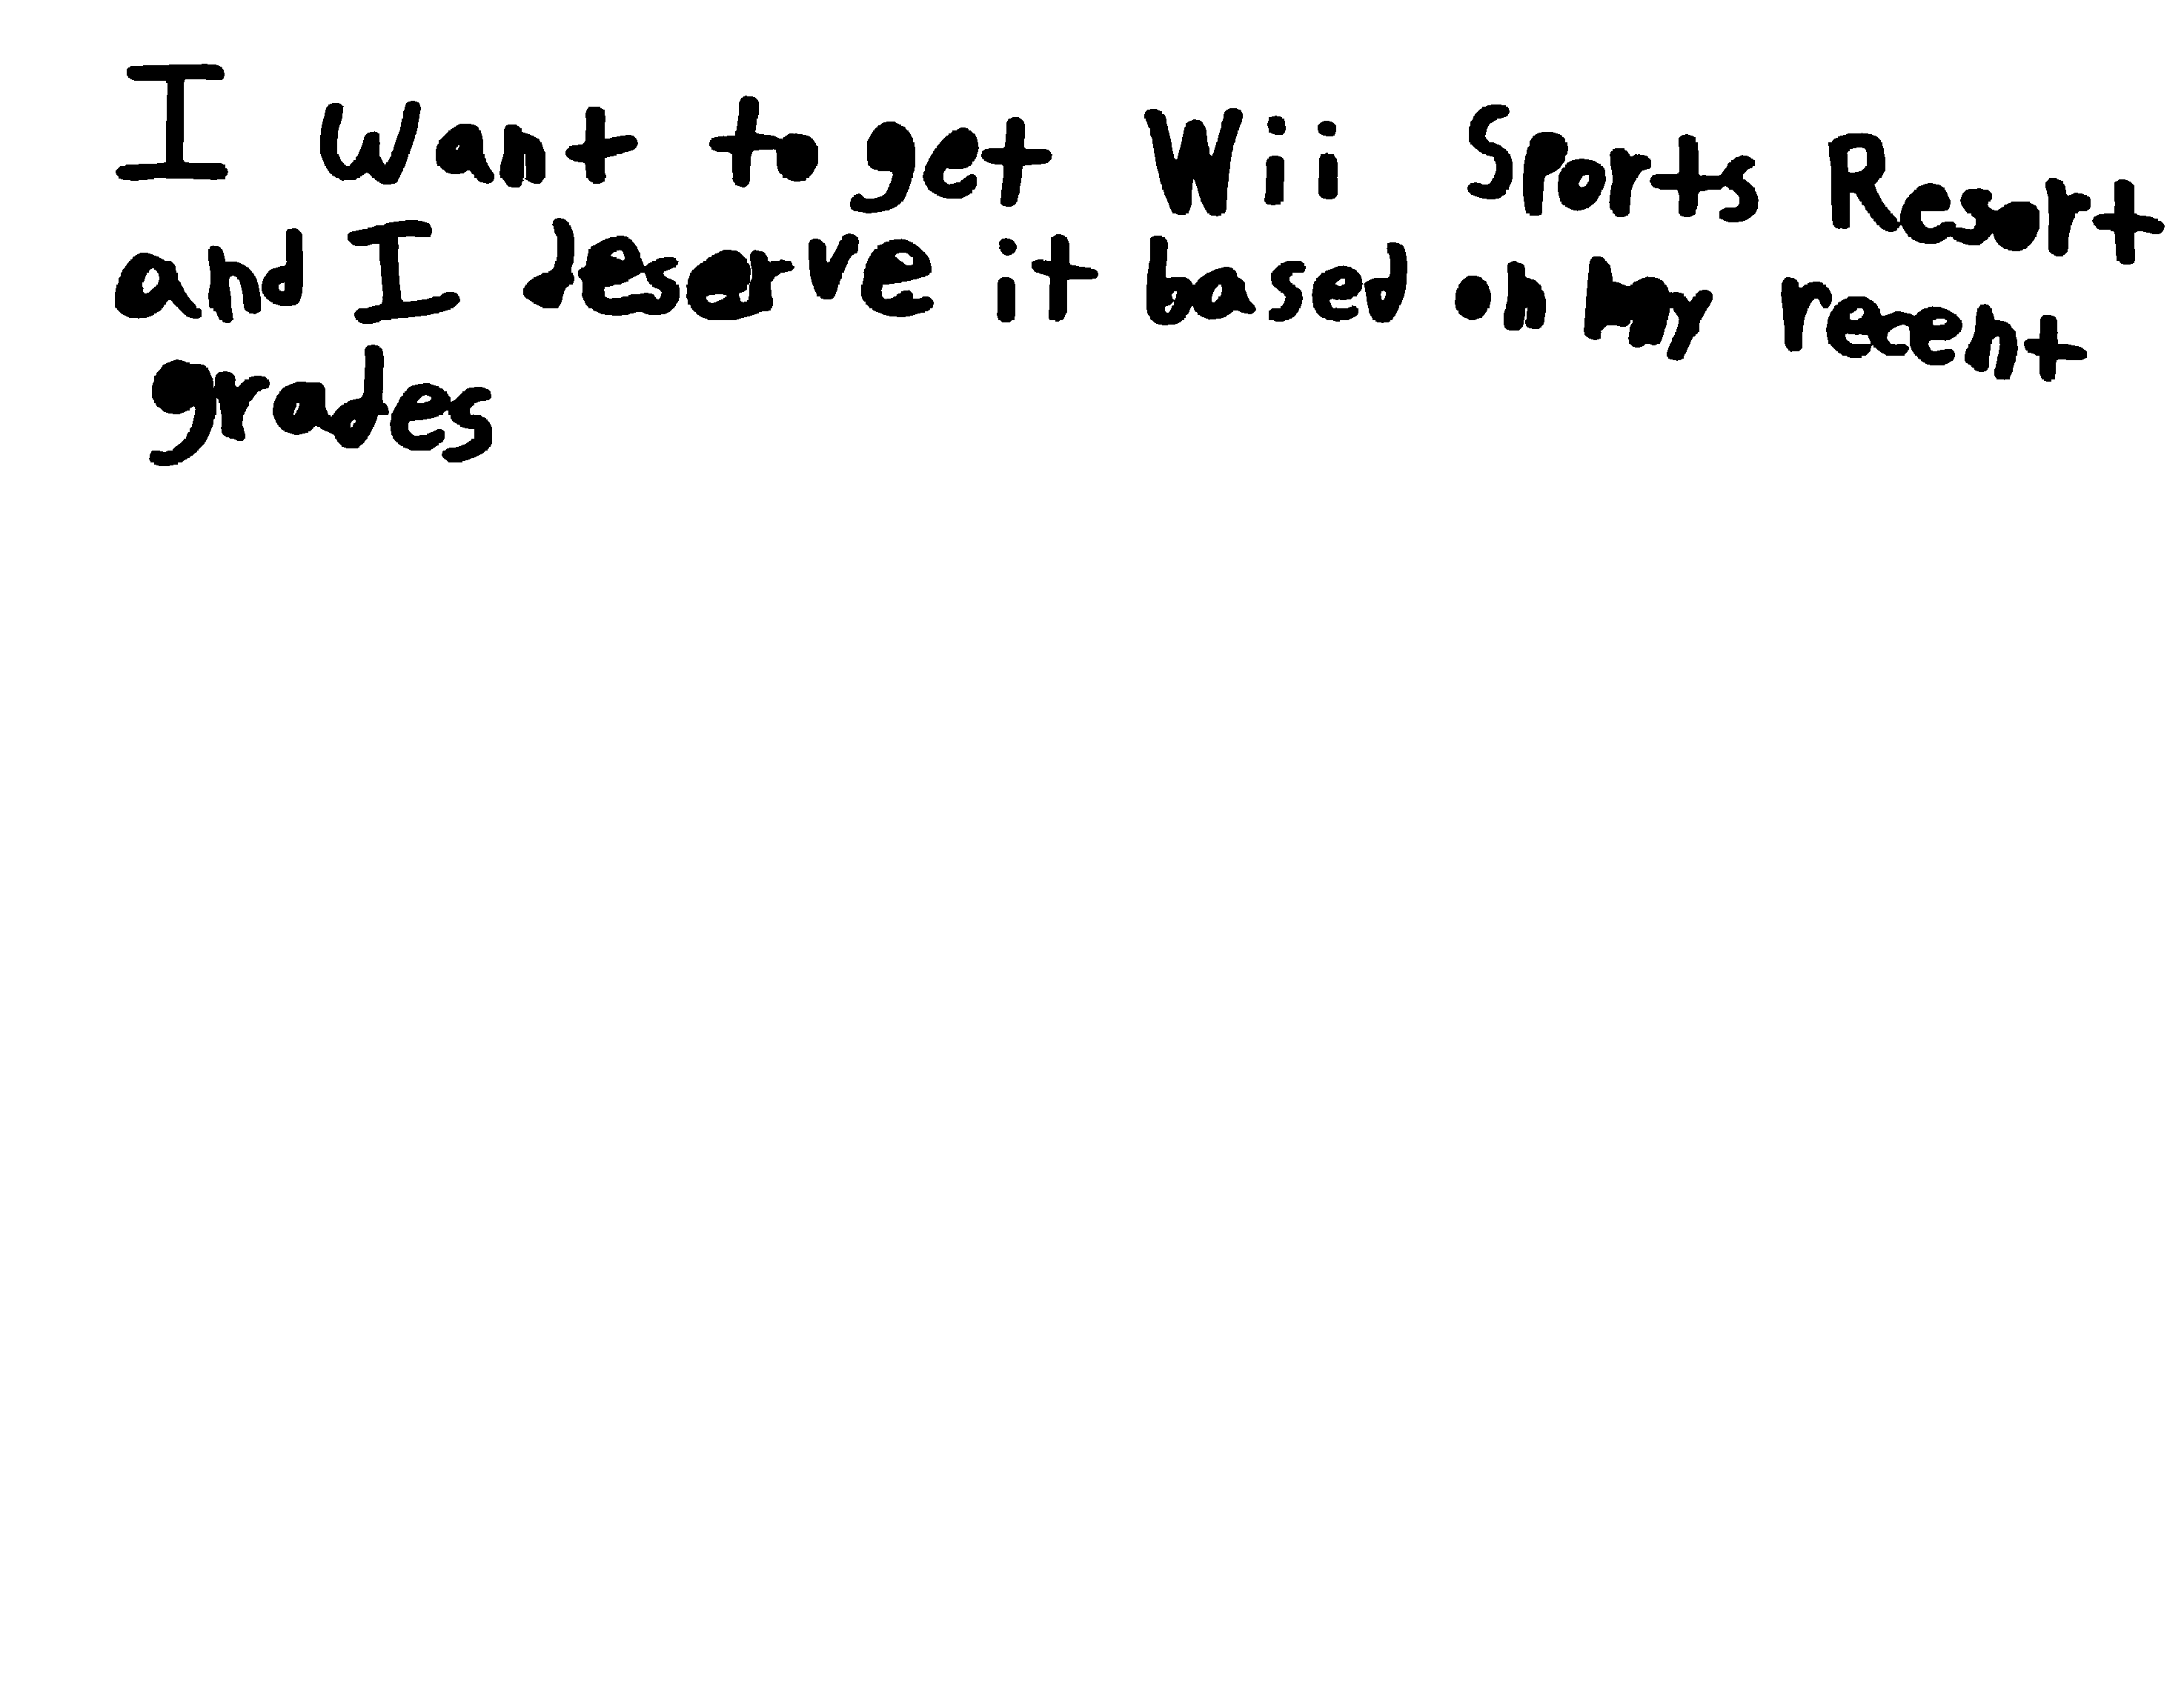 I want to get Wii Sports Resort
and I deserve it based on my recent
grades